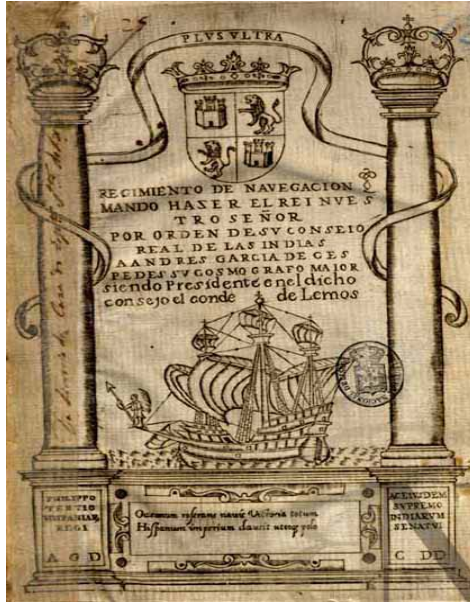 PLVS VLTRA
REGIMIENTO DE NAVEGACION
MANDO HASER EL REI NVES
TRO SEÑOR
POR ORDEN DE SV CONSEIO
REAL DE LAS INDIAS
A ANDRES GARCIA DE CES
PEDES SV COSMOGRAFO MAIOR
siendo Presidente enel dicho
consejo el conde de Lemos
PHILIPPO
TERTIO
HISPANIAR
REGI
A G D
Oceanum reserans navis Victoria totum
Hispanum imperium clausit utroq polo
AC EIVSDEM
SVPREMO
INDIARVM
SENATVI
C DD